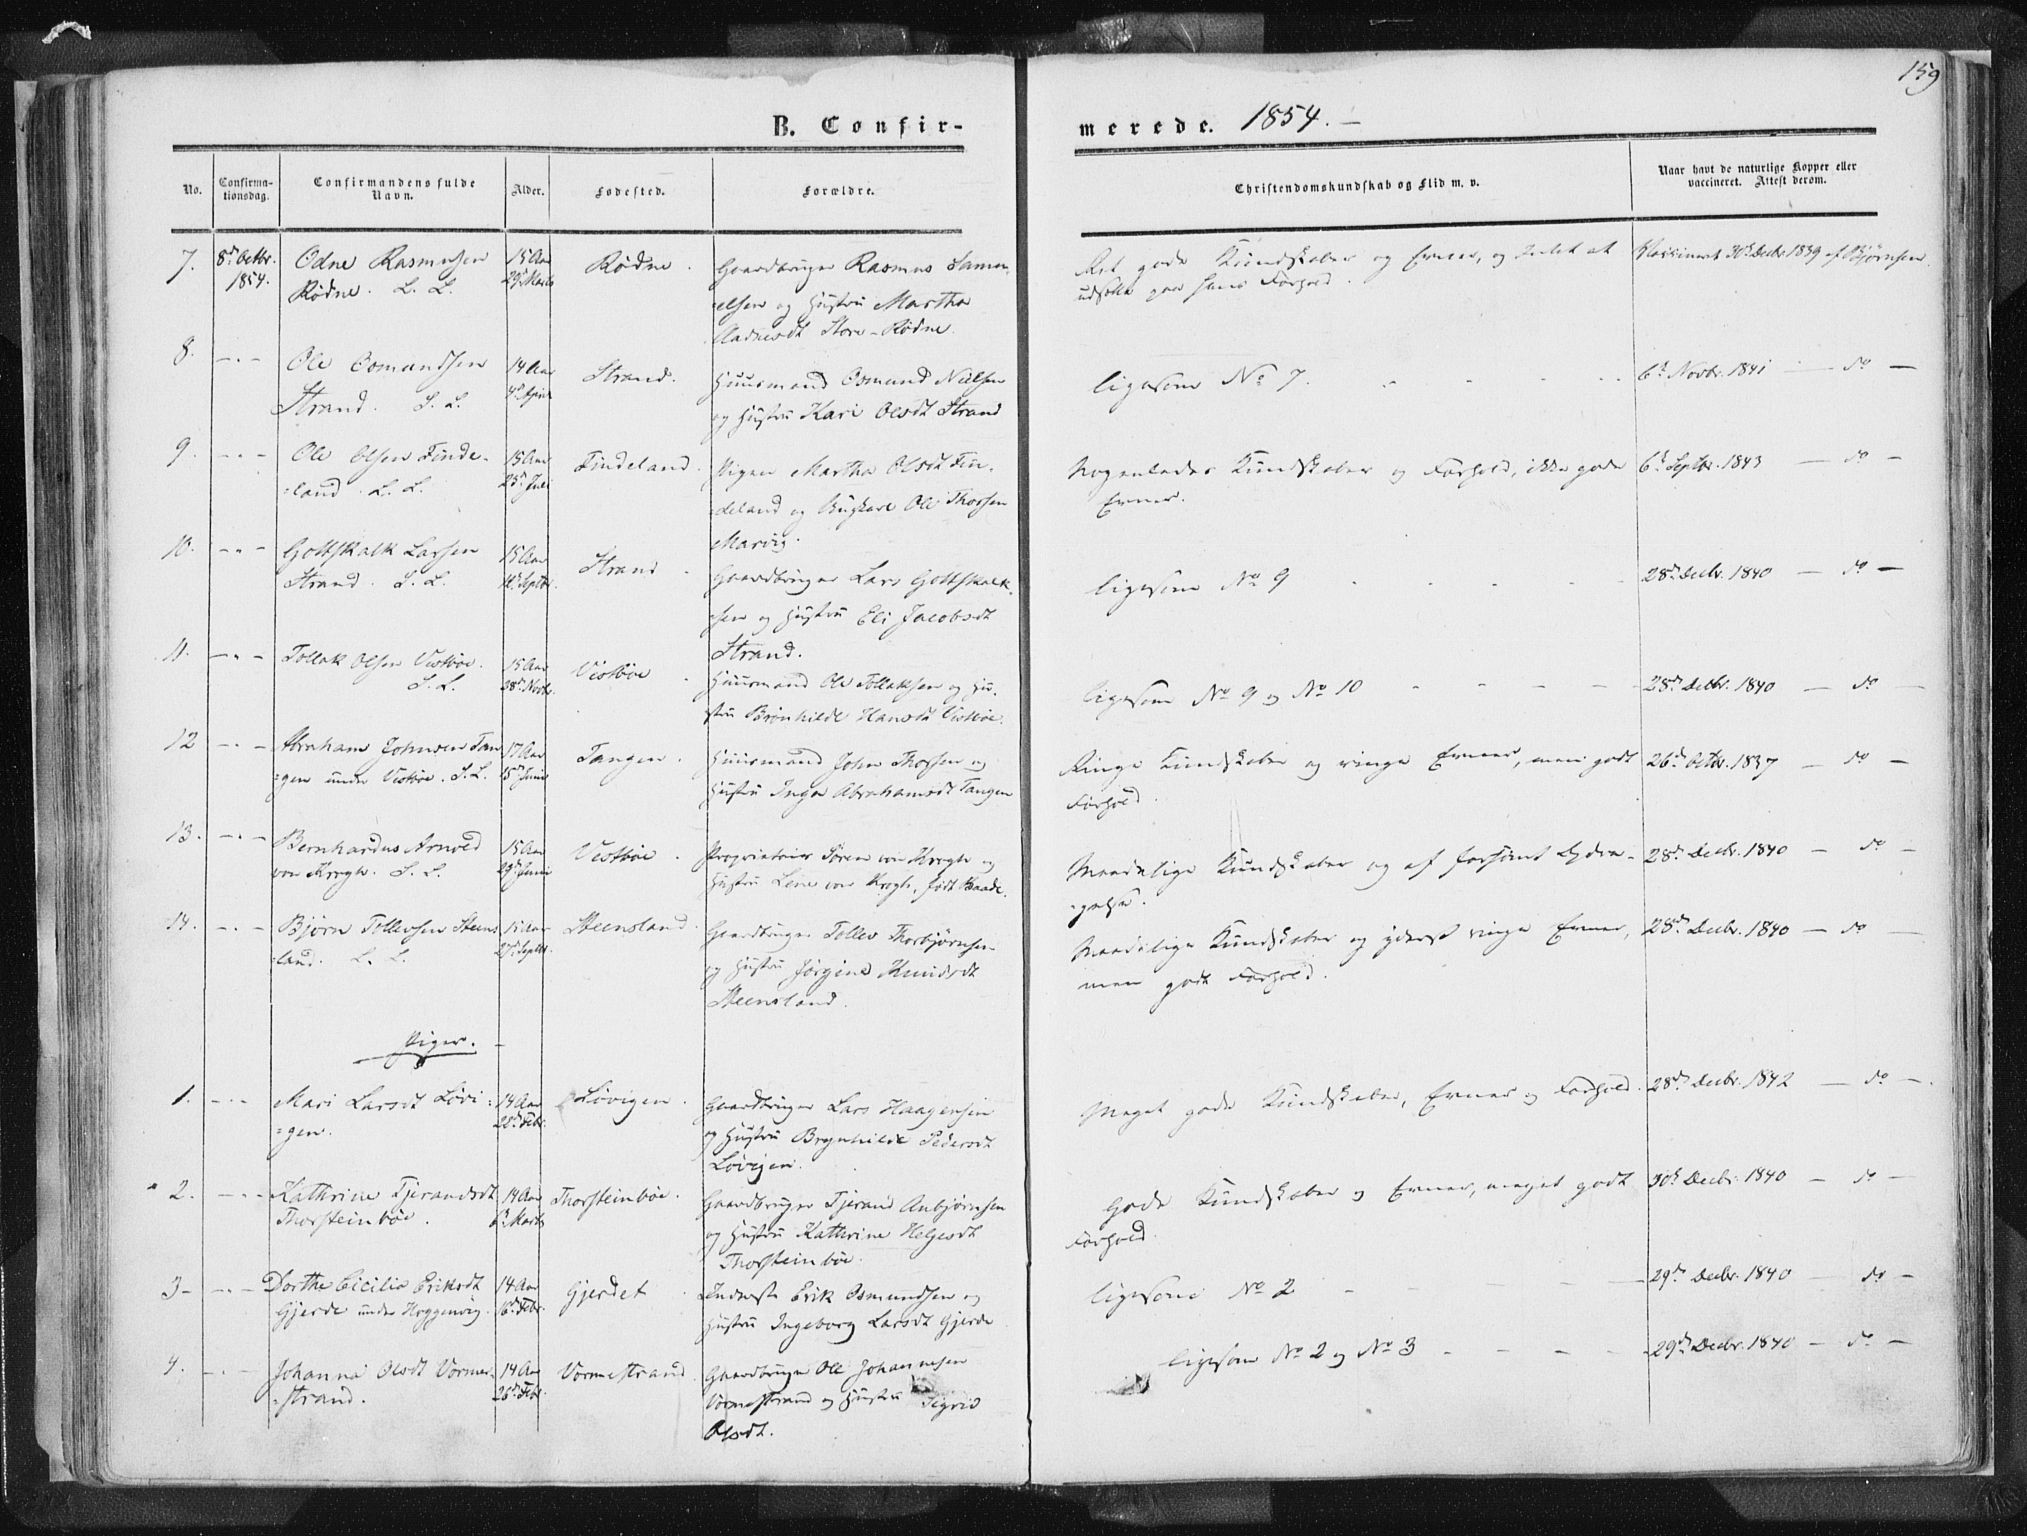 159
B. Confir-
merede. 1854. —
No.
Confirma-
tionsdag.
Confirmandens fulde
Navn.
Alder.
Fødested.
Forældre.
Christendomskundskab og Flid m. v.
Naar havt de naturlige Kopper eller
vaccineret. Attest derom.
7. 8de Octbr. 1854. Odne Rasmusen 15 Aar Rødne. Gaardbruger Rasmus Samu-
Rødne. L. L. 29de Marts elsen og Hustru Martha
Aadnesdt Store-Rødne.
Ret gode Kundskaber og Evner, og Intet at Vaccineret 30te Decbr. 1839 af Bjørnsen.
udsætte paa hans Forhold.
8. - " - Ole Osmundsen 14 Aar Strand. Huusmand Osmund Nielsen
Strand. S. L. 4de og Hustru Kari Olsdt Strand
ligesom No 7. 6te Novbr. 1841 — do —
9. - " - Ole Olsen Finde- 15 Aar Findeland. Pigen Martha Olsdt Fin-
=land. L. L. 25de Juli deland og Ungkarl Ole Thorsen
Marvig.
Nogenledes Kundskaber og Forhold, ikke gode 6te Septbr. 1843 — do —
Evner.
10. - " - Gottskalk Larsen 15 Aar Strand. Gaardbruger Lars Gottskalk-
Strand. S. L. Septbr. sen og Hustru Eli Jacobsdt
Strand.
ligesom No 9 28de Decbr. 1840 — do —
11. - " - Tollak Olsen Vestbøe. 15 Aar Vestbøe Huusmand Ole Tollaksen og Hu-
S. L. 28de Novbr. stru Brønhilde Hansdt Vestbøe.
ligesom No 9 og No 10 28de Decbr. 1840 — do —
12 - " - Abraham Johnsen Tan 17 Aar Tangen. Huusmand John Thorsen og
=gen under Vestbøe. S. L. 15de Juni Hustru Inga Abrahamsdt Tangen
Ringe Kundskaber og ringe Evner, men godt 26de Octbr. 1837 — do —
Forhold.
13. - " - Bernhardus Arnold 15 Aar Vestbøe. Proprietair Søren von Krogh og
von Krogh. S. L. 29de Juni Hustru Lene von Krogh, født Baade.
Maadelige Kundskaber og af forsømt Opdra- 28de Decbr. 1840 — do —
=gelse.
14. - " - Bjørn Tollevsen Steens 15 Aar Steensland. Gaardbruger Tollev Thorbjørnsen
=land. L. L. 27de Septbr. og Hustru Jørgine Knudsdt
Steensland.
Maadelige Kundskaber og yderst ringe Evner, 28de Decbr. 1840 — do —
men godt Forhold.
Piger. —
1. - " - Mari Larsdt Løvi- 14 Aar Løvigen. Gaardbruger Lars Haagensen
=gen. 28de Febr. og Hustru Brynhilde Pedersdt
Løvigen.
Meget gode Kundskaber, Evner og Forhold. 28de Decbr. 1842 — do —
2. - " - Kathrine Tjerandsdt 14 Aar Thorsteinbøe. Gaardbruger Tjerand Anbjørnsen
Thorsteinbøe. 6te Marts og Hustru Kathrine Helgesdt
Thorsteinbøe.
Gode Kundskaber og Evner, meget godt 30te Decbr. 1840 — do —
Forhold.
3 - " - Dorthe Cicilia Eriksdt 14 Aar Gjerdet. Inderste Erik Osmundsen og
Gjerde under Høggenvig. 16de Febr. Hustru Ingeborg Larsdt Gjerde
ligesom No 2 29de Decbr. 1840 — do —
4. - " - Johanna Olsdt Vorme- 14 Aar Vormestrand. Gaardbruger Ole Johannesen
=strand. 26de Febr. Vormestrand og Hustru Sigrid
Olsdt.
ligesom No 2 og No 3 29de Decbr. 1840 — do —